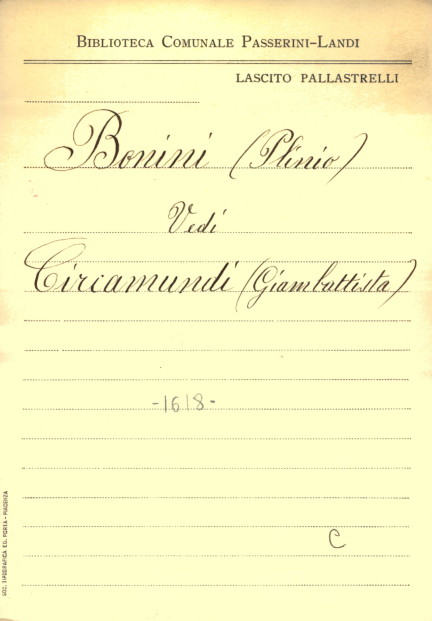 BIBLIOTECA COMUNALE PASSERINI-LANDI
LASCITO PALLASTRELLI
Bonini (Plinio)
Vedi
Circamundi (Giambattista)
-1618-
C
SOC. TIPOGRAFICA ED. PORTA - PIACENZA